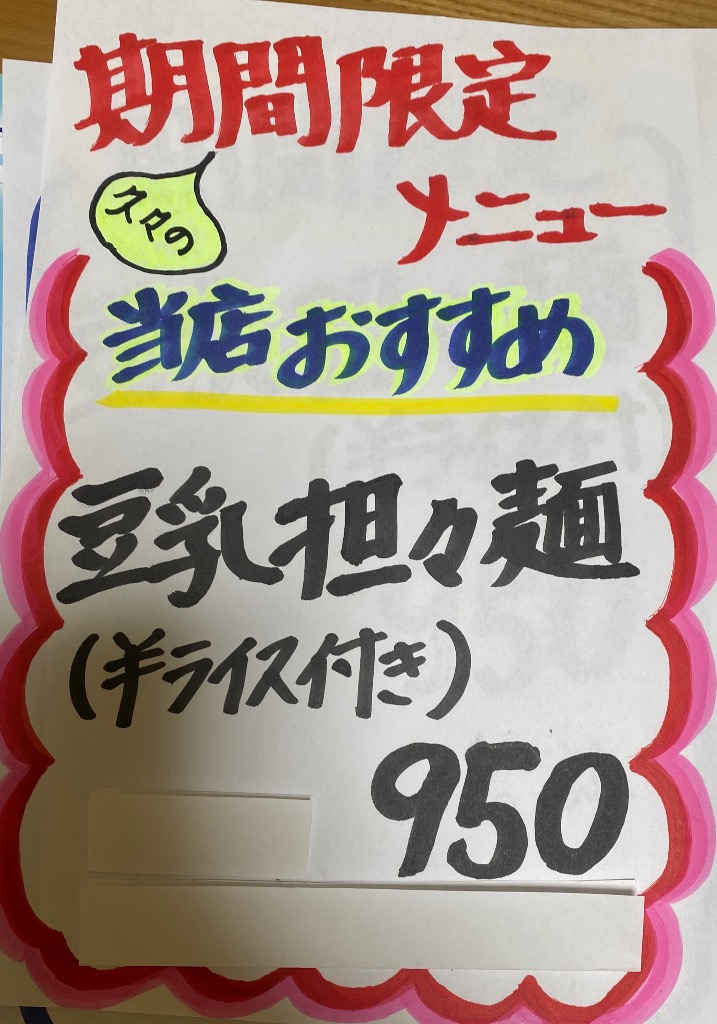 期間限定
久々の
メニュー
当店おすすめ
豆乳担々麺
(半ライス付き)
950